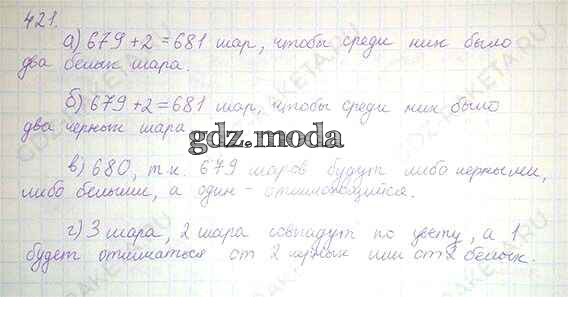 421.
а) 679 + 2 = 681 шар, чтобы среди них было
два белых шара.
б) 679 + 2 = 681 шар, чтобы среди них было
два черных шара
gdz.moda
в) 680, т.к. 679 шаров будут либо черными,
либо белыми, а один - отличающийся.
г) 3 шара, 2 шара совпадут по цвету, а 1
будет отличаться от 2 черных или от 2 белых.